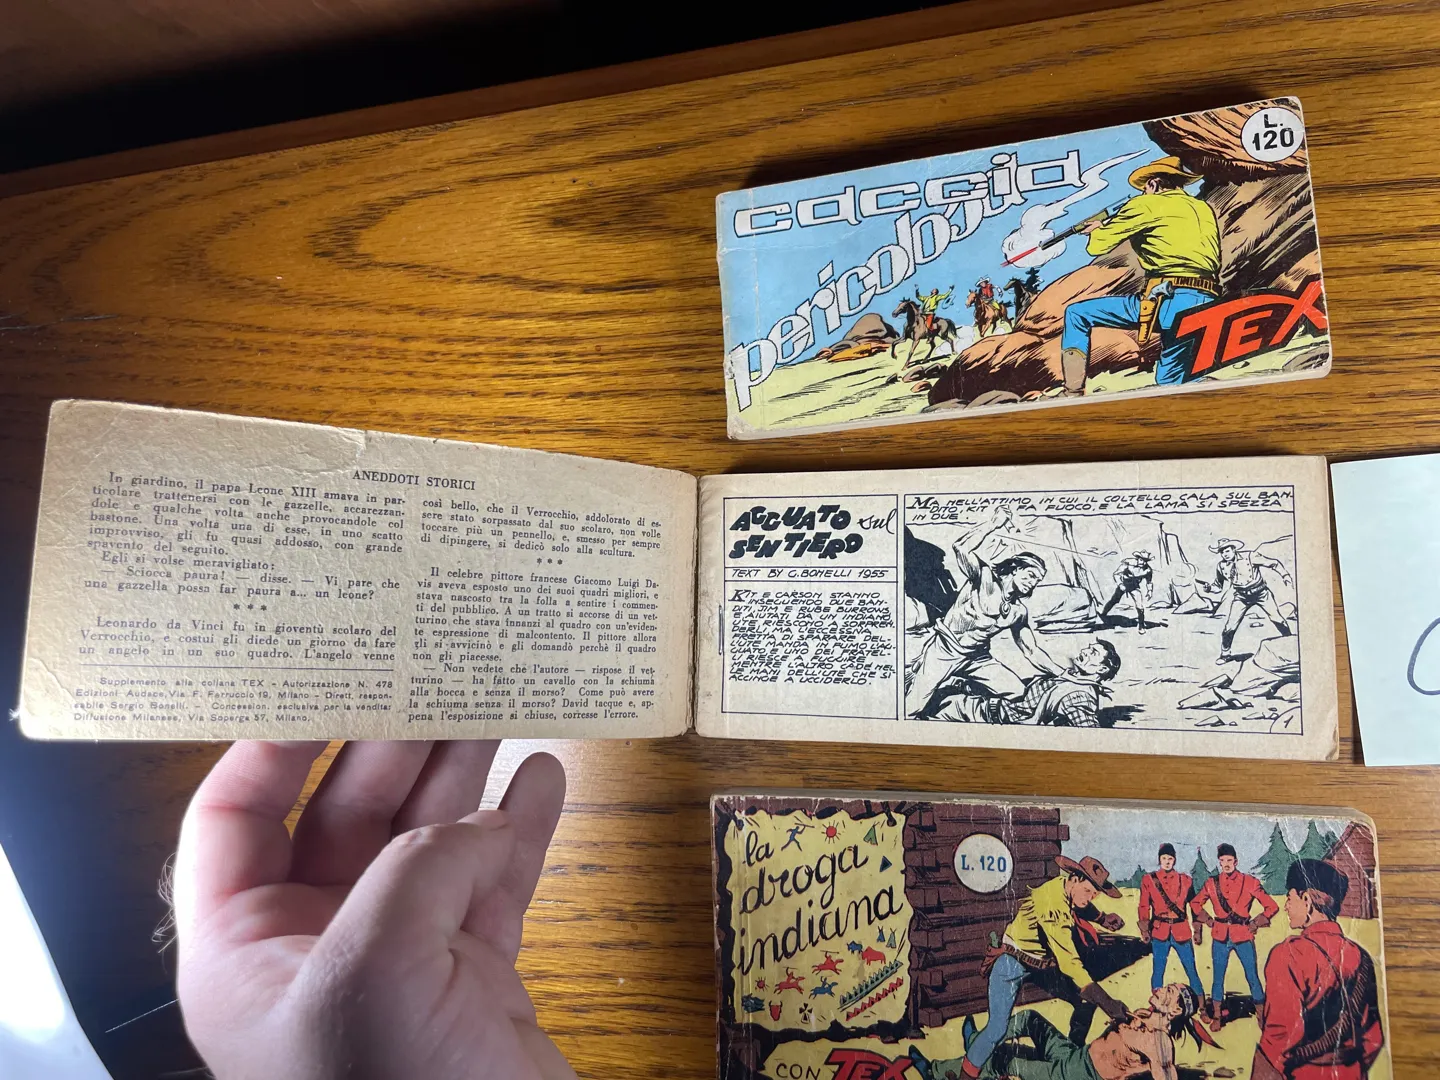 caccia
pericolosa
L.
120
TEX
ANEDDOTI STORICI
In giardino, il papa Leone XIII amava in par-
ticolare trattenersi con le gazzelle, accarezzan-
dole e qualche volta anche provocandole col
bastone. Una volta una di esse, in uno scatto
improvviso, gli fu quasi addosso, con grande
spavento del seguito.
Egli si volse meravigliato:
— Sciocca paura! — disse. — Vi pare che
una gazzella possa far paura a... un leone?
* * *
Leonardo da Vinci fu in gioventù scolaro del
Verrocchio, e costui gli diede un giorno da fare
un angelo in un suo quadro. L'angelo venne
Supplemento alla collana TEX - Autorizzazione N. 478
Edizioni Audace, Via F. Ferruccio 19, Milano - Dirett. respon-
sabile Sergio Bonelli. - Concession. esclusiva per la vendita:
Diffusione Milanese, Via Soperga 57, Milano.
così bello, che il Verrocchio, addolorato di es-
sere stato sorpassato dal suo scolaro, non volle
toccare più un pennello, e, smesso per sempre
di dipingere, si dedicò solo alla scultura.
* * *
Il celebre pittore francese Giacomo Luigi Da-
vis aveva esposto uno dei suoi quadri migliori, e
stava nascosto tra la folla a sentire i commen-
ti del pubblico. A un tratto si accorse di un vet-
turino che stava innanzi al quadro con un'eviden-
te espressione di malcontento. Il pittore allora
gli si avvicinò e gli domandò perchè il quadro
non gli piacesse.
— Non vedete che l'autore — rispose il vet-
turino — ha fatto un cavallo con la schiuma
alla bocca e senza il morso? Come può avere
la schiuma senza il morso? David tacque e, ap-
pena l'esposizione si chiuse, corresse l'errore.
AGGUATO sul
SENTIERO
TEXT BY G. BONELLI 1955
KIT E CARSON STANNO
INSEGUENDO DUE BAN-
DITI, JIM E RUBE BURROWS,
E AIUTATI DA UN INDIANO
UTE RIESCONO A SORPREN-
DERLI, MA L'ECCESSIVA
FRETTA DI SPARARE DEL-
L'UTE MANDA IN FUMO L'AG-
GUATO E UNO DEI FRATEL-
LI RIESCE A FUGGIRE
MENTRE L'ALTRO CADE NEL-
LE MANI DELL'UTE CHE SI
ACCINGE A UCCIDERLO.
MA NELL'ATTIMO IN CUI IL COLTELLO CALA SUL BAN-
DITO, KIT FA FUOCO, E LA LAMA SI SPEZZA
IN DUE.
1
la
droga
indiana
L. 120
CON TEX